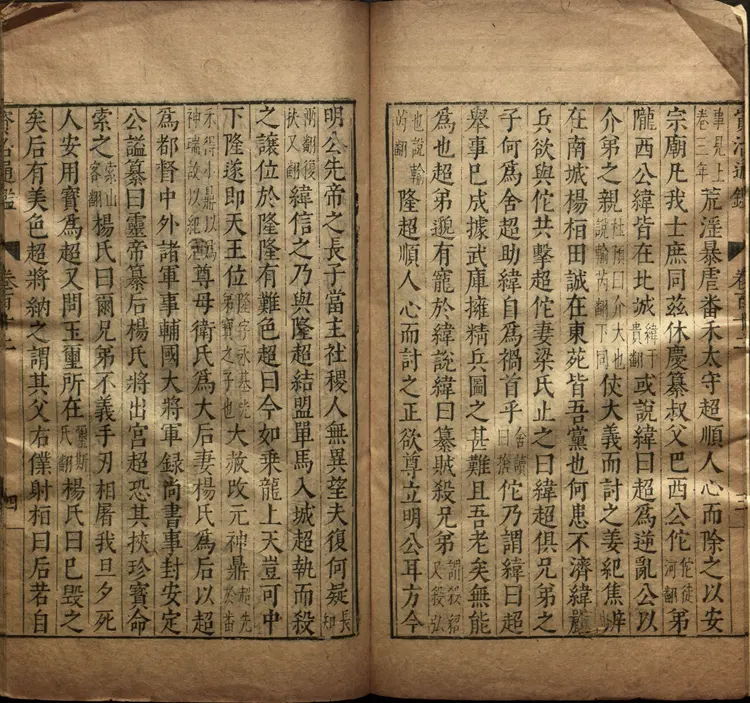 資治通鑑 卷百十二 三
事見上卷三年荒淫暴虐番禾太守超順人心而除之以安
宗廟凡我士庶同茲休慶纂叔父巴西公佗佗徒河翻弟
隴西公緯皆在北城緯于貴翻或說緯曰超爲逆亂公以
介弟之親杜預曰介大也說輸芮翻下同仗大義而討之姜紀焦辨
在南城楊桓田誠在東苑皆吾黨也何患不濟緯嚴
兵欲與佗共擊超佗妻梁氏止之曰緯超俱兄弟之
子何爲舍超助緯自爲禍首乎舍讀曰捨佗乃謂緯曰超
舉事已成據武庫擁精兵圖之甚難且吾老矣無能
爲也超弟邈有寵於緯說緯曰纂賊殺兄弟謂殺紹又殺弘
也說輸芮翻隆超順人心而討之正欲尊立明公耳方今
明公先帝之長子當主社稷人無異望夫復何疑長知
兩翻復扶又翻緯信之乃與隆超結盟單馬入城超執而殺
之讓位於隆隆有難色超曰今如乘龍上天豈可中
下隆遂即天王位隆字永基光弟寶之子也大赦改元神鼎超先於番
禾得小鼎以爲神瑞故以紀元尊母衛氏爲大后妻楊氏爲后以超
爲都督中外諸軍事輔國大將軍録尚書事封安定
公謚纂曰靈帝纂后楊氏將出宮超恐其挾珍寶命
索之索山客翻楊氏曰爾兄弟不義手刃相屠我旦夕死
人安用寶爲超又問玉璽所在璽斯氏翻楊氏曰已毀之
矣后有美色超將納之謂其父右僕射桓曰后若自
資治通鑑 卷百十二 四